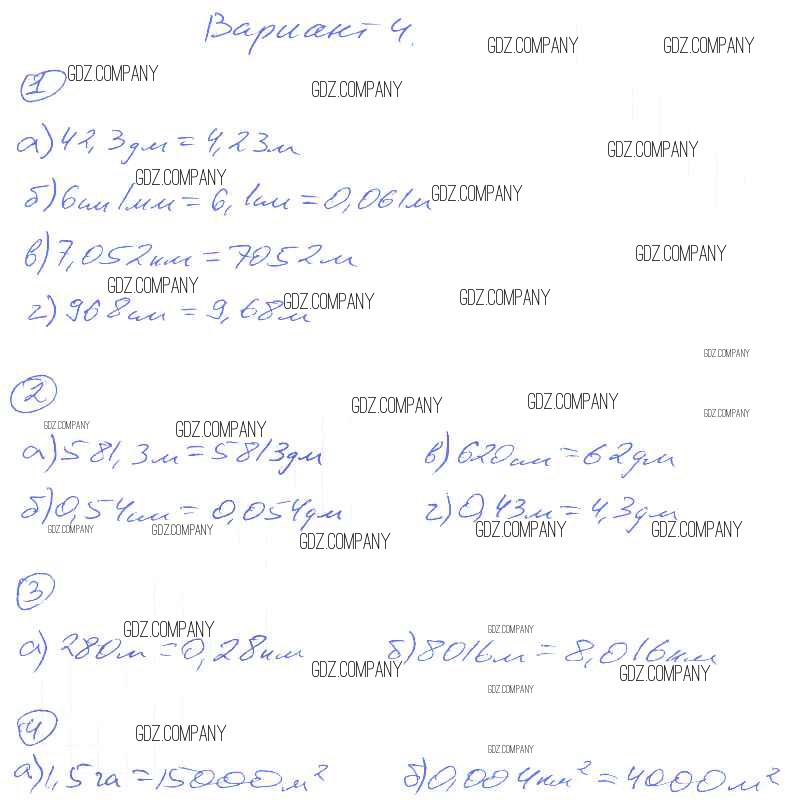 Вариант 4.
GDZ.COMPANY GDZ.COMPANY
1 GDZ.COMPANY
GDZ.COMPANY
а) 42,3дм = 4,23м
GDZ.COMPANY
GDZ.COMPANY GDZ.COMPANY
б) 6см 1мм = 6,1см = 0,061м
в) 7,052км = 7052м
GDZ.COMPANY
GDZ.COMPANY GDZ.COMPANY GDZ.COMPANY
г) 968см = 9,68м
GDZ.COMPANY
2
GDZ.COMPANY GDZ.COMPANY GDZ.COMPANY
GDZ.COMPANY GDZ.COMPANY
а) 581,3м = 5813дм в) 620см = 62дм
б) 0,54см = 0,054дм г) 0,43м = 4,3дм
GDZ.COMPANY GDZ.COMPANY GDZ.COMPANY GDZ.COMPANY GDZ.COMPANY
3
GDZ.COMPANY GDZ.COMPANY
а) 280м = 0,28км б) 8016м = 8,016км
GDZ.COMPANY GDZ.COMPANY
GDZ.COMPANY
4
GDZ.COMPANY GDZ.COMPANY
а) 1,5га = 15000м² б) 0,004км² = 4000м²